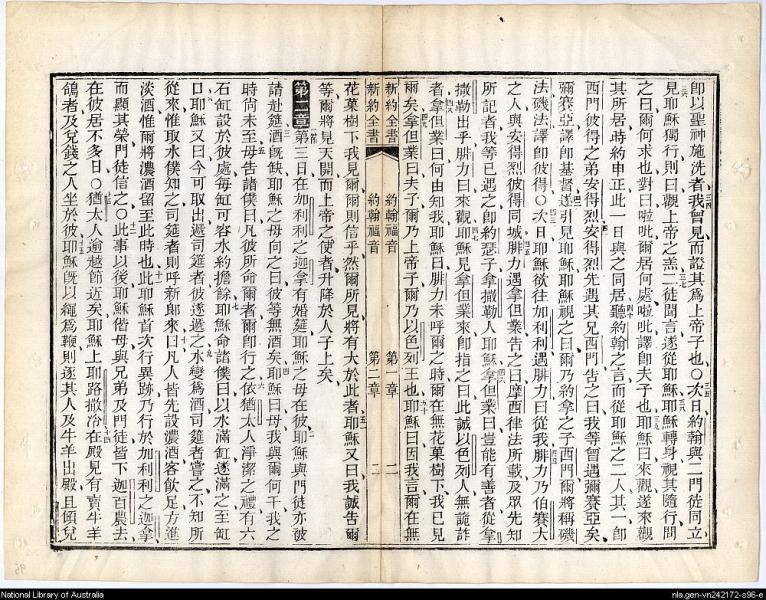 卽以聖神施洗者我曾見而證其爲上帝子也○次日約翰與二門徒同立
見耶穌獨行則曰觀上帝之羔二徒聞言遂從耶穌耶穌轉身視其隨行問
之曰爾何求也對曰啦吡爾居何處啦吡譯卽夫子也耶穌曰來觀遂來觀
其所居時約申正此一日與之同居聽約翰之言而從耶穌之二人其一卽
西門彼得之弟安得烈安得烈先遇其兄西門告之曰我等曾遇彌賽亞矣
彌賽亞譯卽基督遂引見耶穌耶穌視之曰爾乃約拿之子西門爾將稱磯
法磯法譯卽彼得○次日耶穌欲往加利利遇腓力曰從我腓力乃伯賽大
之人與安得烈彼得同城腓力遇拿但業告之曰摩西律法所載及眾先知
所記者我等已遇之卽約瑟子拿撒勒人耶穌拿但業曰豈能有善者從拿
撒勒出乎腓力曰來觀耶穌見拿但業來卽指之曰此誠以色列人無詭詐
者拿但業曰何由知我耶穌曰腓力未呼爾之時爾在無花菓樹下我已見
爾矣拿但業曰夫子爾乃上帝子爾乃以色列王也耶穌曰因我言爾在無
新約全書 約翰福音 第一章 二
新約全書 約翰福音 第二章 二
花菓樹下我見爾爾則信乎然爾所見將有大於此者耶穌又曰我誠告爾
等爾將見天開而上帝之使者升降於人子上矣
第二章第三日在加利利之迦拿有婚筵耶穌之母在彼耶穌與門徒亦被
請赴筵酒旣缺耶穌之母向之曰彼等無酒矣耶穌曰母我與爾何干我之
時尚未至母告諸僕曰凡彼所命爾者爾卽行之依猶太人淨潔之禮有六
石缸設於彼處每缸可容水約擔餘耶穌命諸僕曰以水滿缸遂滿之至缸
口耶穌又曰今可取出遞司筵者彼遂遞之水變爲酒司筵者嘗之不知所
從來惟取水僕知之司筵者則呼新郎來曰凡人皆先設濃酒客飲足方進
淡酒惟爾將濃酒留至此時也此耶穌首次行異跡乃行於加利利之迦拿
而顯其榮門徒信之○此事以後耶穌偕母與兄弟及門徒皆下迦百農去
在彼居不多日○猶太人逾越節近矣耶穌上耶路撒冷在殿見有賣牛羊
鴿者及兌錢之人坐於彼耶穌旣以繩爲鞭則逐其人及牛羊出殿且傾兌
National Library of Australia
nla.gen-vn242172-s96-e